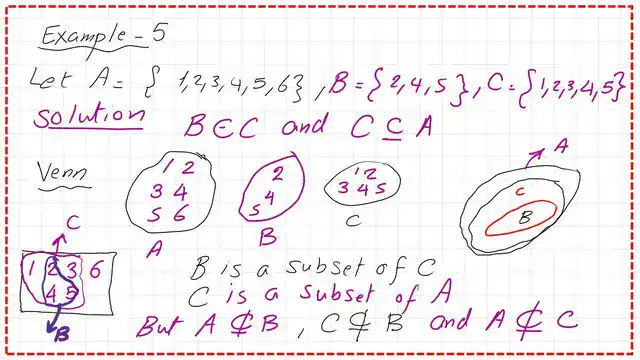 Example-5
Let A = { 1,2,3,4,5,6} , B = {2,4,5} , C = {1,2,3,4,5}
Solution B ⊆ C and C ⊆ A
Venn
1 2
3 4
5 6
A
2
4
5
B
1 2
3 4 5
C
A
C
B
C
1 2 3 6
4 5
B
B is a subset of C
C is a subset of A
But A ⊄ B , C ⊄ B and A ⊄ C